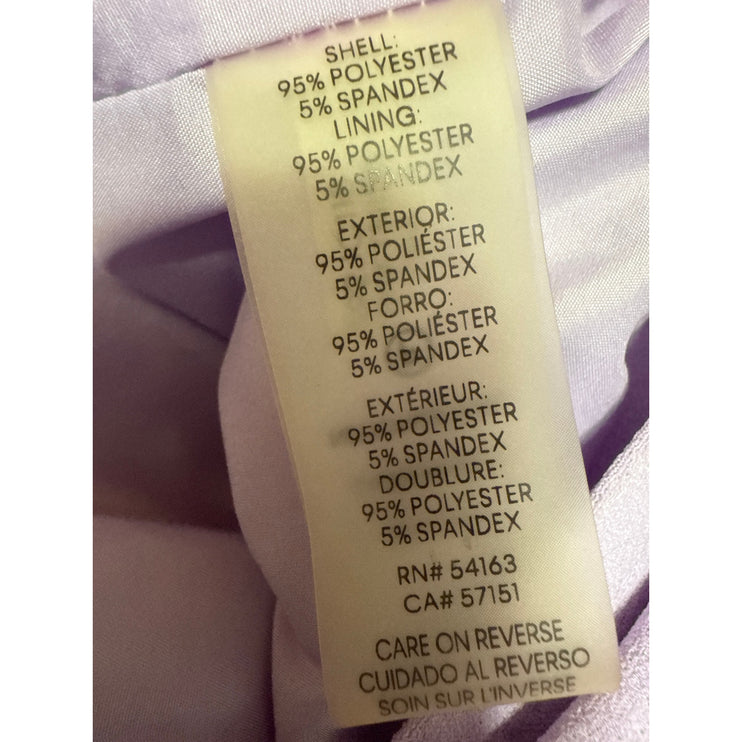 SHELL:
95% POLYESTER
5% SPANDEX
LINING:
95% POLYESTER
5% SPANDEX
EXTERIOR:
95% POLIÉSTER
5% SPANDEX
FORRO:
95% POLIÉSTER
5% SPANDEX
EXTÉRIEUR:
95% POLYESTER
5% SPANDEX
DOUBLURE:
95% POLYESTER
5% SPANDEX
RN# 54163
CA# 57151
CARE ON REVERSE
CUIDADO AL REVERSO
SOIN SUR L'INVERSE